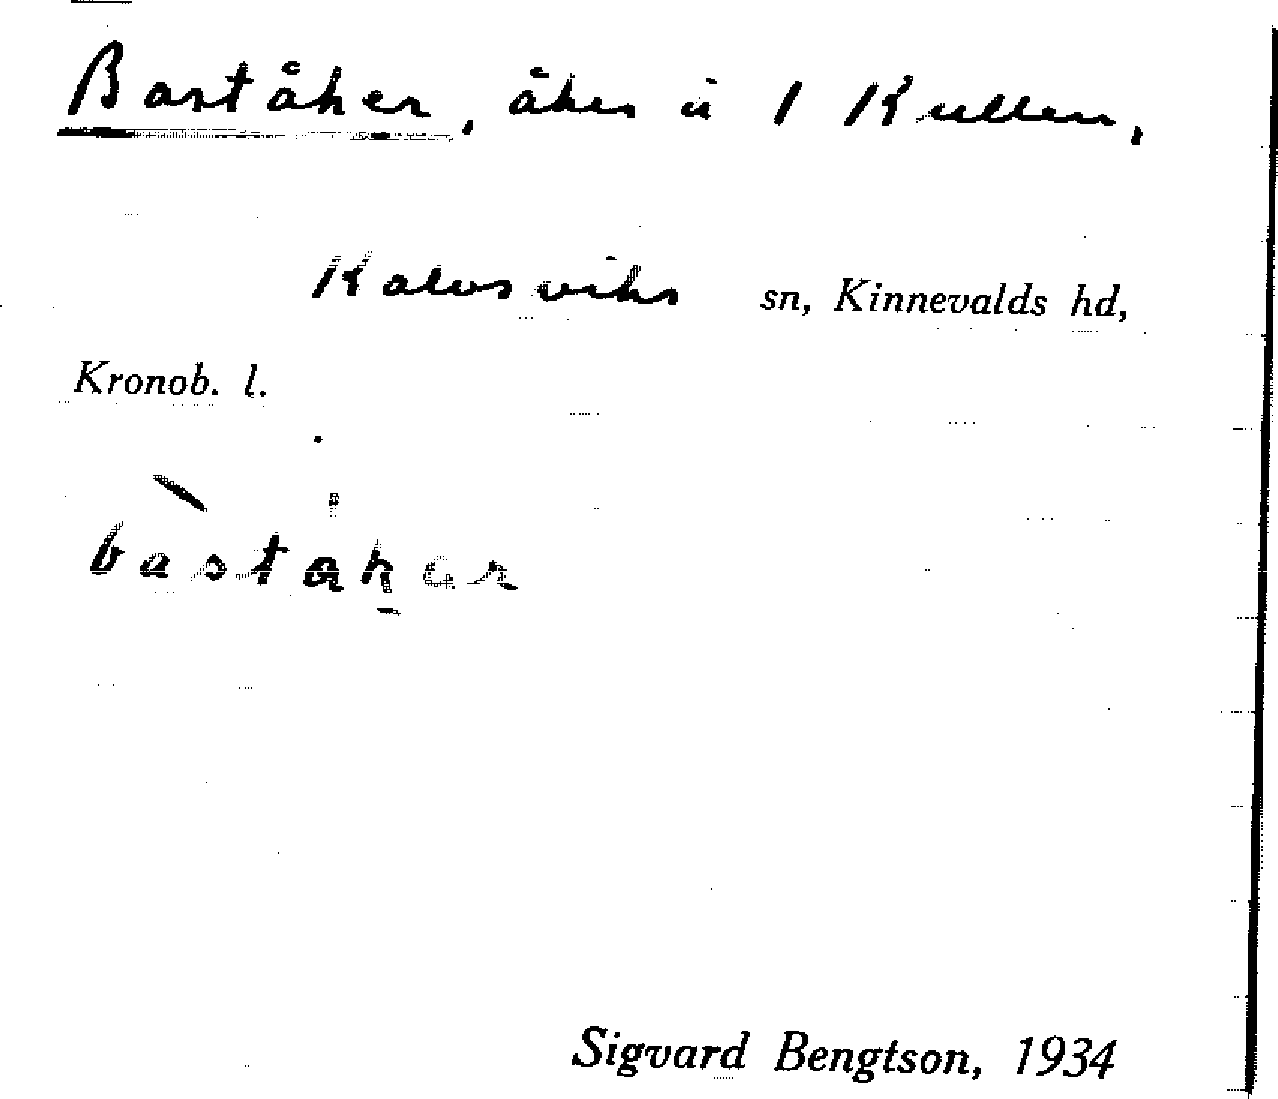 Baståker, åker å 1 Kullen,
Kalvsviks sn, Kinnevalds hd,
Kronob. l.
bàståkar
Sigvard Bengtson, 1934